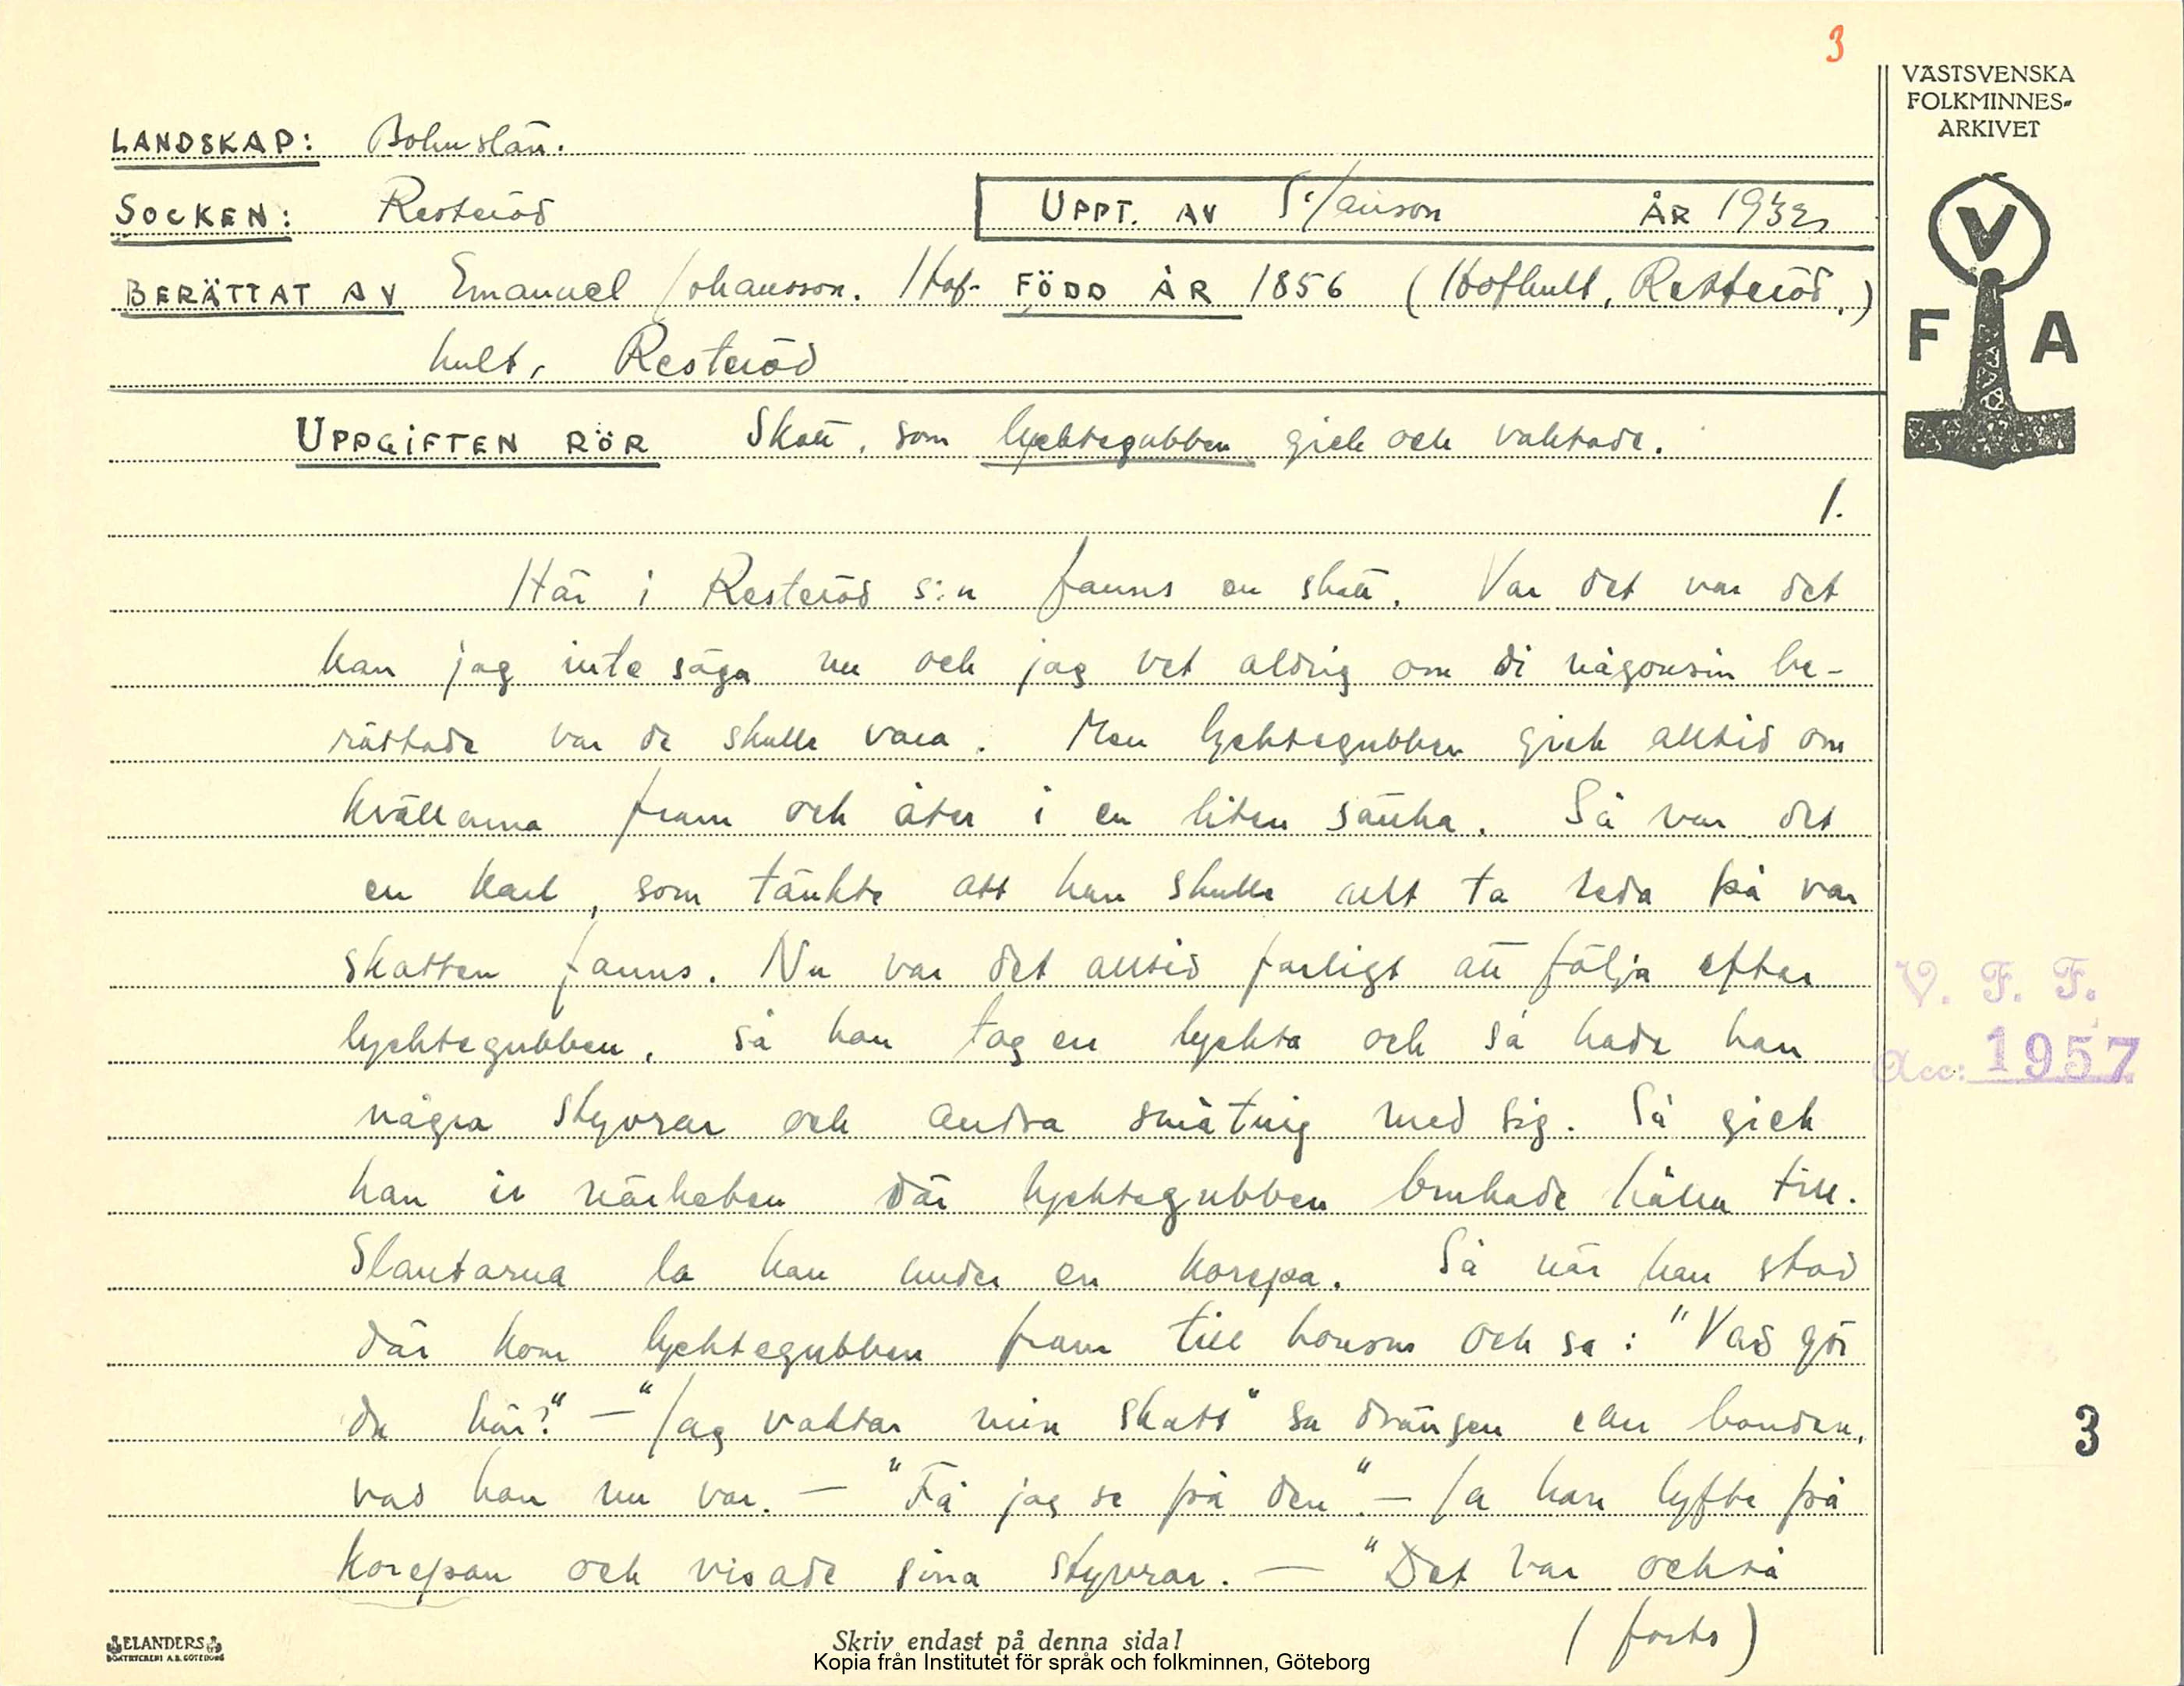 3
VÄSTSVENSKA
FOLKMINNES-
ARKIVET
LANDSKAP: Bohuslän.
SOCKEN: Resteröd
UPPT. AV S. Janson ÅR 1932
BERÄTTAT AV Emanuel Johansson. Hof- FÖDD ÅR 1856 (Hofhult, Resteröd.)
hult, Resteröd
V
F A
UPPGIFTEN RÖR Skatt, som lycktegubben gick och vaktade.
1.
Här i Resteröd s:n fanns en skatt. Var det var det
kan jag inte säga nu och jag vet aldrig om di någonsin be-
rättade var de skulle vara. Men lycktegubben gick alltid om
kvällarna fram och åter i en liten sänka. Så var det
en karl, som tänkte att han skulle allt ta reda på var
skatten fanns. Nu var det alltid farligt att följa efter
lycktegubben, så han tog en lyckta och så hade han
några styvrar och andra småting med sig. Så gick
han i närheten där lycktegubben brukade hålla till.
Slantarna la han under en korepa. Så när han stod
där kom lycktegubben fram till honom och sa: "Vad gör
du här?" – "Jag vaktar min skatt" sa drängen eller bonden,
vad han nu var. – "Få jag se på den". – Ja han lyfte på
korepan och visade sina styvrar. – "Det var också
(forts)
V. F. F.
Acc: 1957
3
ELANDERS
BOKTRYCKERI A.B. GÖTEBORG
Skriv endast på denna sida!
Kopia från Institutet för språk och folkminnen, Göteborg